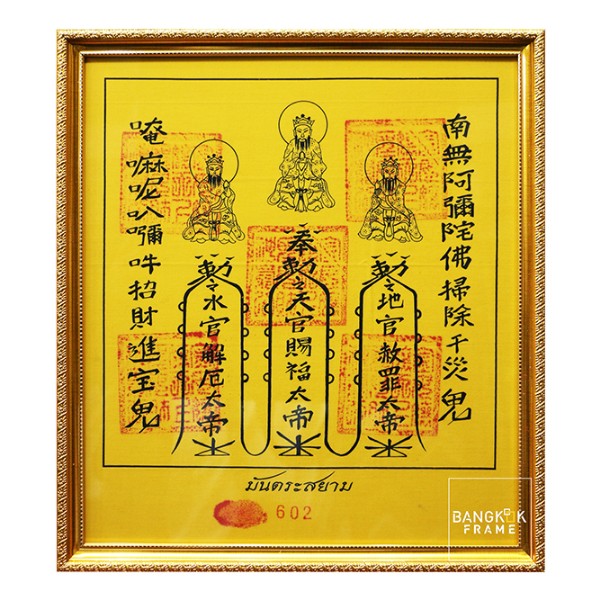 南無阿彌陀佛掃除千災鬼
奉勅之天官賜福大帝
勅之地官赦罪大帝
勅之水官解厄大帝
唵嘛呢叭囑吽招財進宝鬼
มันตระสยาม
602
BANGKOK
FRAME